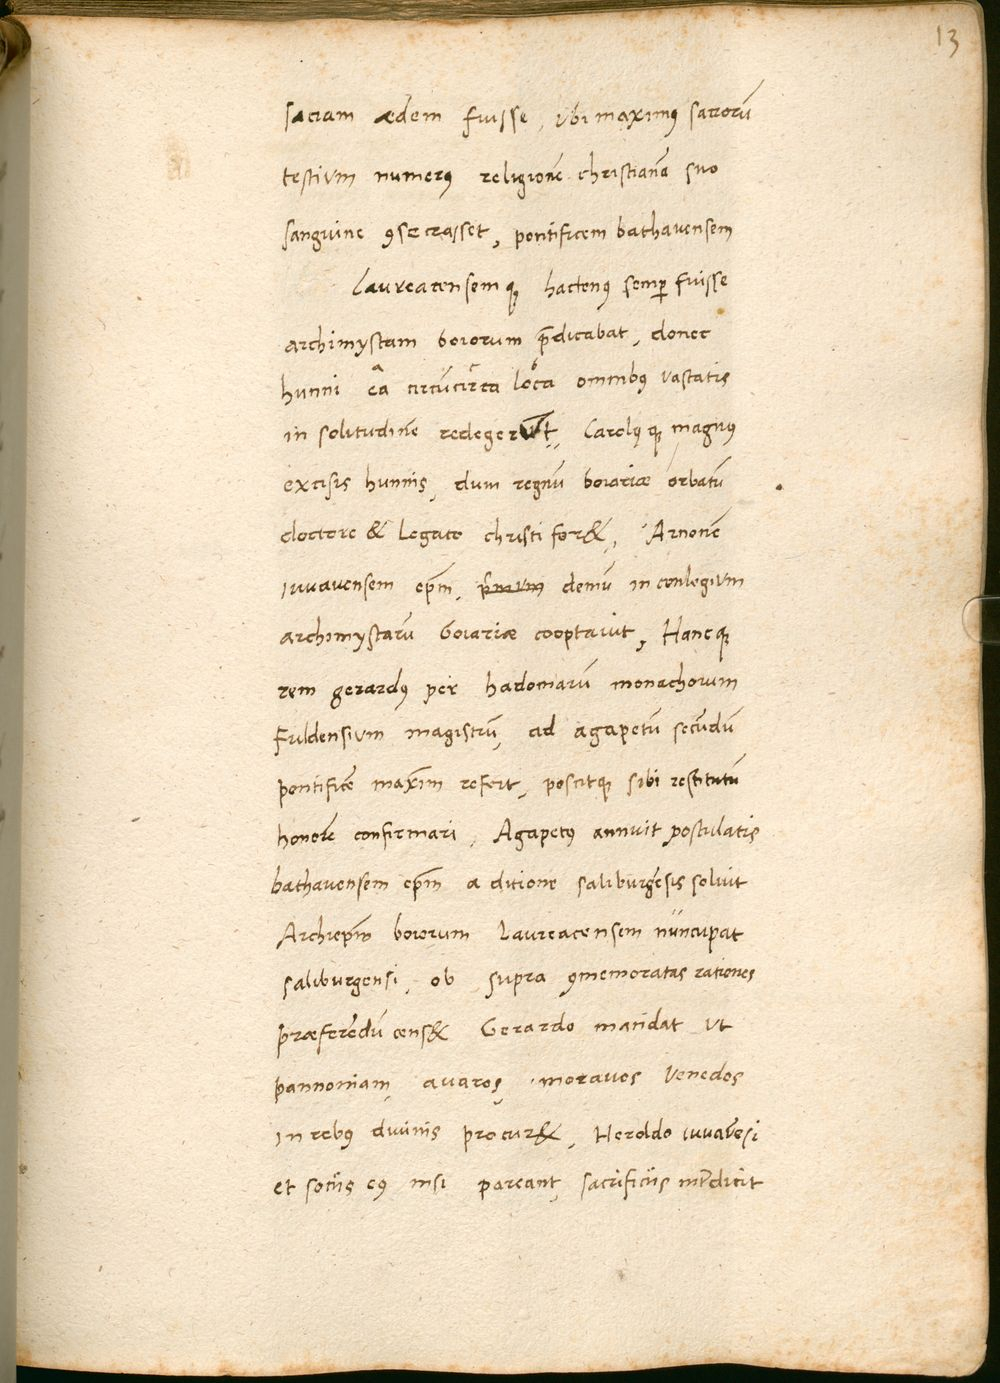 13
sacram ædem fuisse, vbi maximꝰ sacrorū
testium numerꝰ religionē christianā suo
sanguine ꝯsecrasset, pontificem bathauensem
Laureacensemqꝫ hactenꝰ semꝑ fuisse
archimystam boiorum p̄dicabat, donec
hunni ea circūcirca loca omnibꝰ vastatis
in solitudinē redegerūt, Carolꝰqꝫ magnus
excisis hunnis, dum regnū boiariæ orbatū
doctore & legato christi for&, Arnonē
iuuauensem ep̄m, demū in conlegium
archimystarū boiariæ cooptauit, Hancqꝫ
rem gerardꝰ per hadomarū monachorum
fuldensium magistrū, ad agapetū secūdū
pontificē maxīm refert, poscitqꝫ sibi restitutū
honorē confirmari, Agapetꝰ annuit postulatis
bathauensem ep̄m a ditione saliburgēsis soluit
Archiep̄m boiorum Laureacensem nuncupat
saliburgensi, ob supra ꝯmemoratas rationes
præferēdū cens& Gerardo mandat vt
pannoniam, auaros, morauos venedos
in rebꝰ diuinis procur&, Heroldo iuuauēsi
et sociis eiꝰ nisi pareant, sacrificiis int̄dicit